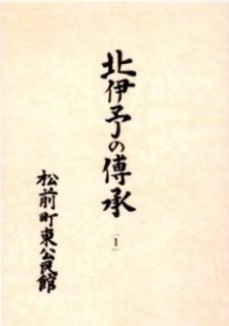 北伊予の傳承
(1)
松前町東公民館